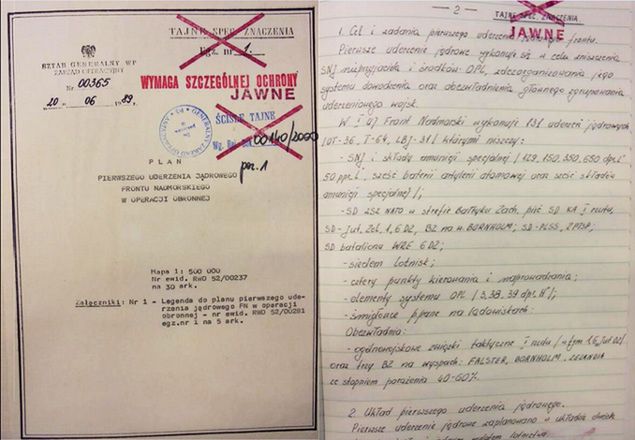 TAJNE SPEC. ZNACZENIA
Egz. nr 1.
SZTAB GENERALNY WP
ZARZĄD OPERACYJNY
Nr 00365
20 06 1989
WYMAGA SZCZEGÓLNEJ OCHRONY
JAWNE
ŚCIŚLE TAJNE
00140/2000
poz. 1
PLAN
PIERWSZEGO UDERZENIA JĄDROWEGO
FRONTU NADMORSKIEGO
W OPERACJI OBRONNEJ
Mapa 1: 500 000
Nr ewid. RWO 52/00237
na 30 ark.
Załączniki: Nr 1 - Legenda do planu pierwszego ude-
rzenia jądrowego FN w oparacji
obronnej - nr ewid. RWO 52/00281
egz.nr 1 na 5 ark.
- 2 -
TAJNE SPEC. ZNACZENIA
JAWNE
1. Cel i zadania pierwszego uderzenia jądrowego frontu.
Pierwsze uderzenie jądrowe wykonuje się w celu zniszczenia
SNJ nieprzyjaciela i środków OPL, zdezorganizowania jego
systemu dowodzenia oraz obezwładnienia głównego zgrupowania
uderzeniowego wojsk.
W I uj Front Nadmorski wykonuje 131 uderzeń jądrowych
/OT-36, T-64, LBJ-31/ którymi niszczy:
- SNJ i składy amunicji specjalnej /129, 150, 350, 650 dpr. l
50 ppr. l, sześć baterii artylerii atomowej oraz sześć składów
amunicji specjalnej/;
- SD ŁSZ NATO w strefie Bałtyku Zach, pięć SD KA i rzutu,
SD-Jut, Zel, 1, 6 DZ, BZ na w. BORNHOLM; SD-PLSS,
SD batalionu WRE 6 DZ;
- siedem lotnisk;
- cztery punkty kierowania i naprowadzania;
- elementy systemu OPL /3, 38, 39 dpr. H/;
- śmigłowce ppanc na lądowiskach:
Obezwładnia:
- ogólnowojskowe związki taktyczne I rzutu /w tym 1, 6, Jut DZ/
oraz trzy BZ na wyspach: FALSTER, BORNHOLM, ZELANDIA
ze stopniem porażenia 40-60%.
2. Układ pierwszego uderzenia jądrowego.
Pierwsze uderzenie jądrowe zaplanowano w układzie dwóch